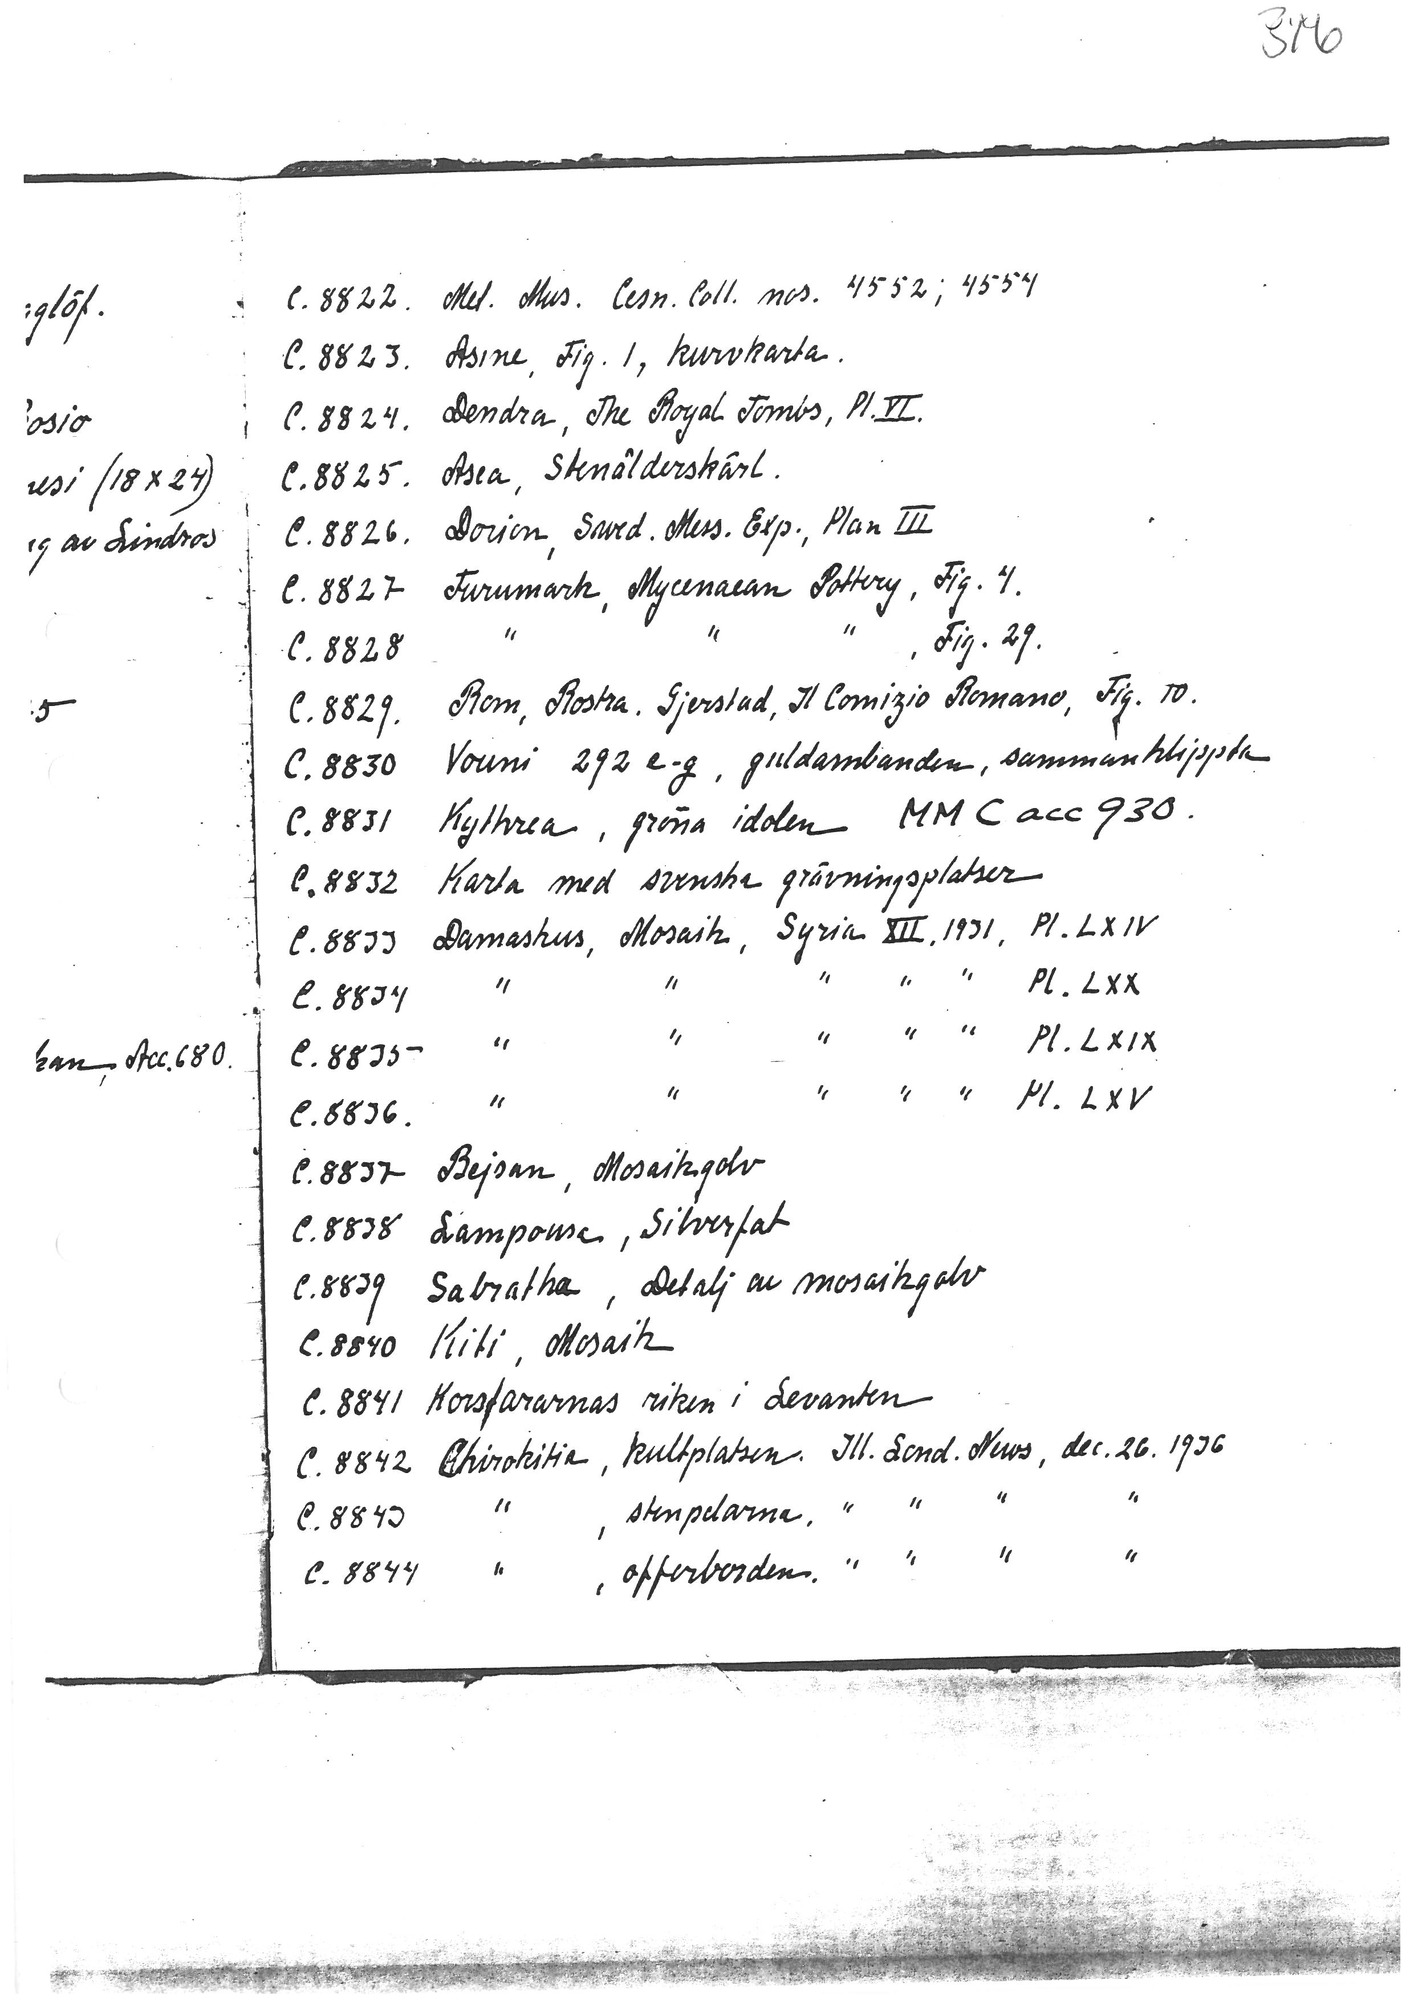 376
glöf.
osio
esi (18 x 24)
g av Lindros
5
kan, Acc. 680.
C. 8822. Met. Mus. Cesn. Coll. nos. 4552; 4554
C. 8823. Asine, Fig. 1, kurvkarta.
C. 8824. Dendra, The Royal Tombs, Pl. VI.
C. 8825. Asea, Stenålderskärl.
C. 8826. Dorion, Swed. Mess. Exp., Plan III
C. 8827 Furumark, Mycenaean Pottery, Fig. 4.
C. 8828 " " " , Fig. 29.
C. 8829. Rom, Rostra. Gjerstad, Il Comizio Romano, Fig. 10.
C. 8830 Vouni 292 e-g, guldarmbanden, sammanklippta
C. 8831 Kythrea, gröna idolen MM C acc 930.
C. 8832 Karta med svenska grävningsplatser
C. 8833 Damaskus, Mosaik, Syria XII, 1931, Pl. LXIV
C. 8834 " " " " " Pl. LXX
C. 8835 " " " " " Pl. LXIX
C. 8836. " " " " " Pl. LXV
C. 8837 Bejsan, Mosaikgolv
C. 8838 Lampousa, Silverfat
C. 8839 Sabratha, Detalj av mosaikgolv
C. 8840 Kiti, Mosaik
C. 8841 Korsfararnas riken i Levanten
C. 8842 Chirokitia, kultplatsen. Ill. Lond. News, dec. 26. 1936
C. 8843 " , stenpelarna. " " " "
C. 8844 " , offerborden. " " " "